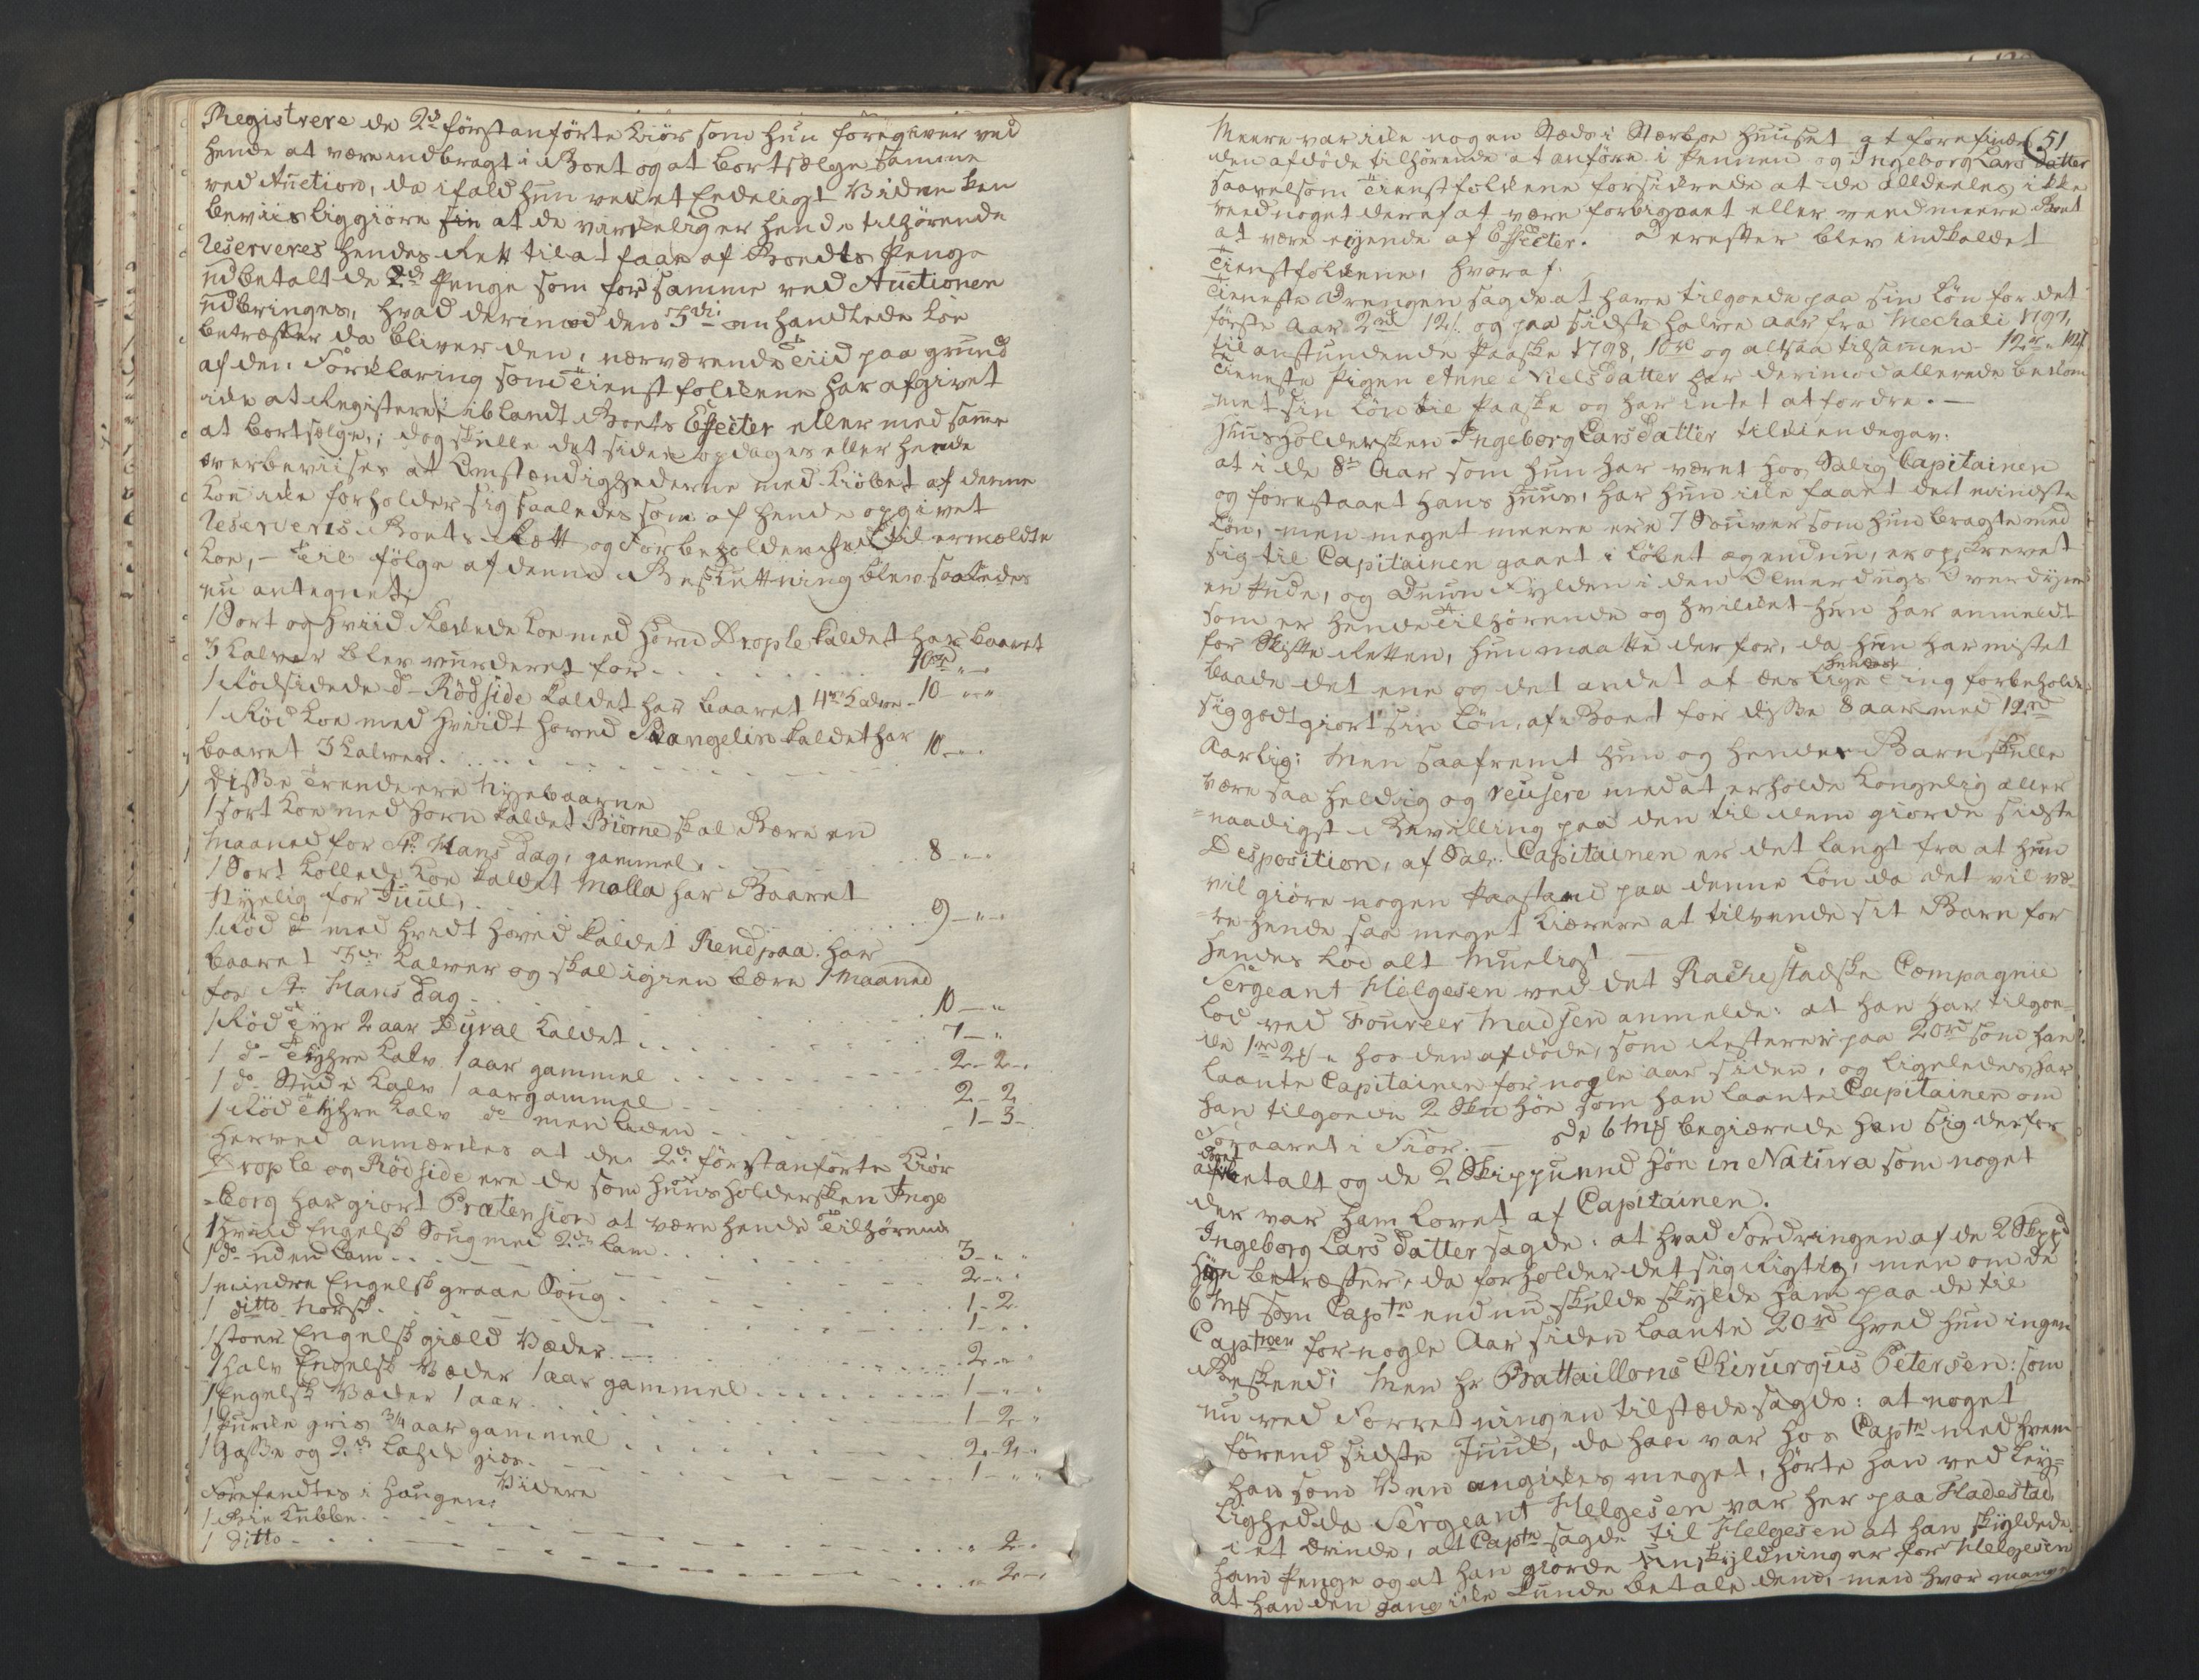 Registrere de 2de först anförte Kiör som hun foregiver ved
hende at være indbragt i Boet og at bortsælge samme
ved Auction, da ifald hun ved et Endeligt Vidne kan
beviisliggiöre at de virkelig er hende tilhörende
Reserveres hendes Rett til at faae af Boedts Penge
udbetalt de Penge som for samme ved Auctionen
udbringes, hvad derimod den 3die omhandlede Koe
betræffer da bliver den, nærværende Tiid paa grund
af den Forklaring som Tienstfolkene har afgivet
ikke at Registeres iblandt Boets Effecter eller med samme
at bortsælges; dog skulle det siden opdages eller hende
overbeviises at Omstændighederne med Kiöbet af denne
Koe ikke forholder sig saaledes som af hende opgivet
Reserveris Boets Rett og Forbeholdenhed til ermældte
Koe, – Til fölge af denne Beslutning blev saaledes
nu antegnet
1 Sort og hviid Koe med Horn Drople kaldet har baaret
3 Kalver blev vurderet for . . . 10rd „ –
1 Rödsidede do – Rödside kaldet har baaret 4re Kalve – 10 – „ –
1 Röd Koe med hviidt hoved kaldet har
baaret 3 Kalver . . . 10 – „ –
Disse Trende ere Nyebaarne
1 sort Koe med Horn kaldet Biörne skal Bære en
Maaned for St. Hans Dag, gammel . . . 8 – „ –
1 Sort Kollede Koe kaldet Malla har Baaret
Nyelig for Juul, . . . 9 – „ –
1 Röd do med hvidt hoved kaldet Rendpaa har
baaret 3de Kalver og skal igien bære 1 Maaned
for St. Hans Dag . . . 10 – „
1 Röd Tyr 2 aar Dyral kaldet . . . 7 – „
1 do – Tyhre Kalv 1 aar gammel . . . 2 – 2 –
1 do – Stude Kalv 1 aar gammel . . . 2 – 2
1 Röd Tyhre Kalv do men liden . . . 1 – 3 –
herved anmærkes at de 2de först anförte Kiör
Drople og Rödside ere de som Huusholdersken Inge
borg har giort Prætension at være hende Tilhörende
1 hviid Engelsk Soug med 2de Lam . . . 3 – „ –
1 do – uden Lam . . . 2 – „ –
1 mindre Engelsk graae Soug . . . 1 – 2
1 ditto Norsk . . . 1 – „ –
1 stoer Engelsk giæld Væder . . . 2 – „ –
1 halv Engelsk Væder 1 aar gammel . . . 1 – „ –
1 Engelsk Væder 1 aar . . . 1 – 2 „
1 Purke gris 3/4 aar gammel . . . 2 – 2 –
1 Gasse og 2de gies . . . 1 – „ „
Videre
Forefandtes i Haugen:
1 Bie Kubbe . . . „ 2 –
1 ditto . . . „ 2 –
51
Meere var ikke nogen Stæds i Stærboe Huuset at forefinde
den afdöde tilhörende at anföre i Pennen og Ingeborg Lars Datter
saavelsom Tienstfolkene forsikrede at de alldeeles ikke
veed noget deraf at være forbigaaet eller veed meere Boet
at være eyende af Effecter. Derefter blev indkaldet
Tienstfolkene, hvoraf:
Tieneste Drengen sagde at have tilgoede paa sin Lön for det
förste Aar 2rd 12s og paa sidste halve aar fra Mechali 1797,
til anstundende Paaske 1798, 10rd og altsaa tilsammen – 12rd „ 12s
Tieneste Pigen Anne Niels Datter har derimod allerede bekom
met sin Lön til Paaske og har intet at fordre. –
Huusholdersken Ingeborg Lars Datter tilkiendegav:
at i de 8te Aar som hun har været hos Salig Capitainen
og forestaaet hans Huus, har hun ikke faaet det mindste
Lön, men meget meere ere 7 Souver som hun bragte med
sig til Capitainen gaaet i Löbet og endnu, er opskrevet
en Pude, og Duun Fylden i den Olmerdugs Overdyne
som er hende Tilhörende og hvilket hun har anmeldt
for Skifte Retten, hun maatte derfor, da hun har mistet
baade det ene og det andet af deslige hendes Ting forbeholde
sig godtgiort sin Lön af Boet for disse 8 aar med 12rd
Aarlig: Men saafremt hun og hendes Barn skulle
være saa heldig og reusere med at erholde Kongelig aller
naadigst Bevilling paa den til dem giorde sidste
Desposition, af Sal. Capitainen er det langt fra at hun
vil giöre nogen Paastand paa denne Lön da det vil væ-
re hende saa meget kiærere at tilvende sit Barn for
hendes Lod alt Mueligst –
Sergeant Helgesen ved det Rackestadske Compagnie
lod ved Foureer Madsen anmelde: at han har tilgoe-
de 1rd 2s hos den afdöde, som Resterer paa 20rd som han
laante Capitainen for nogle aar siden, og ligeledes har
han tilgoede 2 Sku Höe som han laante Capitainen om
Foraaret i Fior. – De 6 Mk begiærede han sig derfor
betalt og de 2 Skippund Höe in Natura som noget
der var ham lovet af Capitainen.
Ingeborg Lars Datter sagde: at hvad Fordringen af de 2 Skpd
Höe betræffer, da forholder det sig Rigtig, men om de
6 Mk som Captn endnu skulde skylde ham paa de til
Captnen for nogle Aar siden laante 20rd hved hun ingen
Beskeed; Men hr Battaillons Chirurgus Petersen: som
nu ved Forretningen tilstæde sagde: at noget
förend sidste Juul, da han var hos Captn med hvem
han som Ven omgikkes meget, hörte han ved Ley-
lighed da Sergeant Helgesen var her paa Kladestad
i et Ærinde, at Captn sagde til Helgesen at han skyldede
ham Penge og at han giorde undskyldninger for Helgesen
at han den gang ikke kunde betale dem, men hvor mange